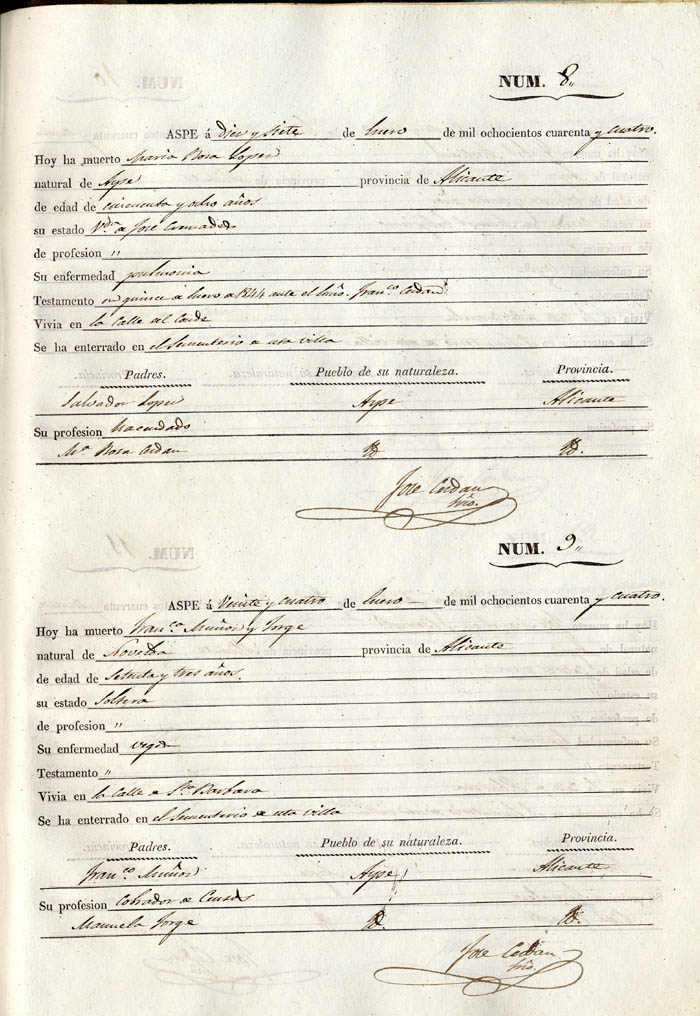 NUM. 8„
ASPE á Diez y siete de Enero de mil ochocientos cuarenta y cuatro.
Hoy ha muerto Maria Rosa Lopez
natural de Aspe provincia de Alicante
de edad de cincuenta y ocho años
su estado V.da de José Cremades
de profesion „
Su enfermedad pulmonia
Testamento en quince de Enero de 1844 ante el Esno. Fran.co Cerdan
Vivia en la Calle del Conde
Se ha enterrado en el Sementerio de esta villa
Padres. Pueblo de su naturaleza. Provincia.
Salvador Lopez Aspe Alicante
Su profesion hacendado
M.a Rosa Cerdan Id. Id.
Jose Cerdan
Srio.
NUM. 9„
ASPE á Veinte y cuatro de Enero de mil ochocientos cuarenta y cuatro.
Hoy ha muerto Fran.ca Muñoz y Jorge
natural de Novelda provincia de Alicante
de edad de Setenta y tres años.
su estado Soltera
de profesion „
Su enfermedad vejez
Testamento „
Vivia en la Calle de Sta Barbara
Se ha enterrado en el Sementerio de esta villa
Padres. Pueblo de su naturaleza. Provincia.
Fran.co Muñoz Aspe Alicante
Su profesion Cobrador de Censos
Manuela Jorge Id. Id.
Jose Cerdan
Srio.